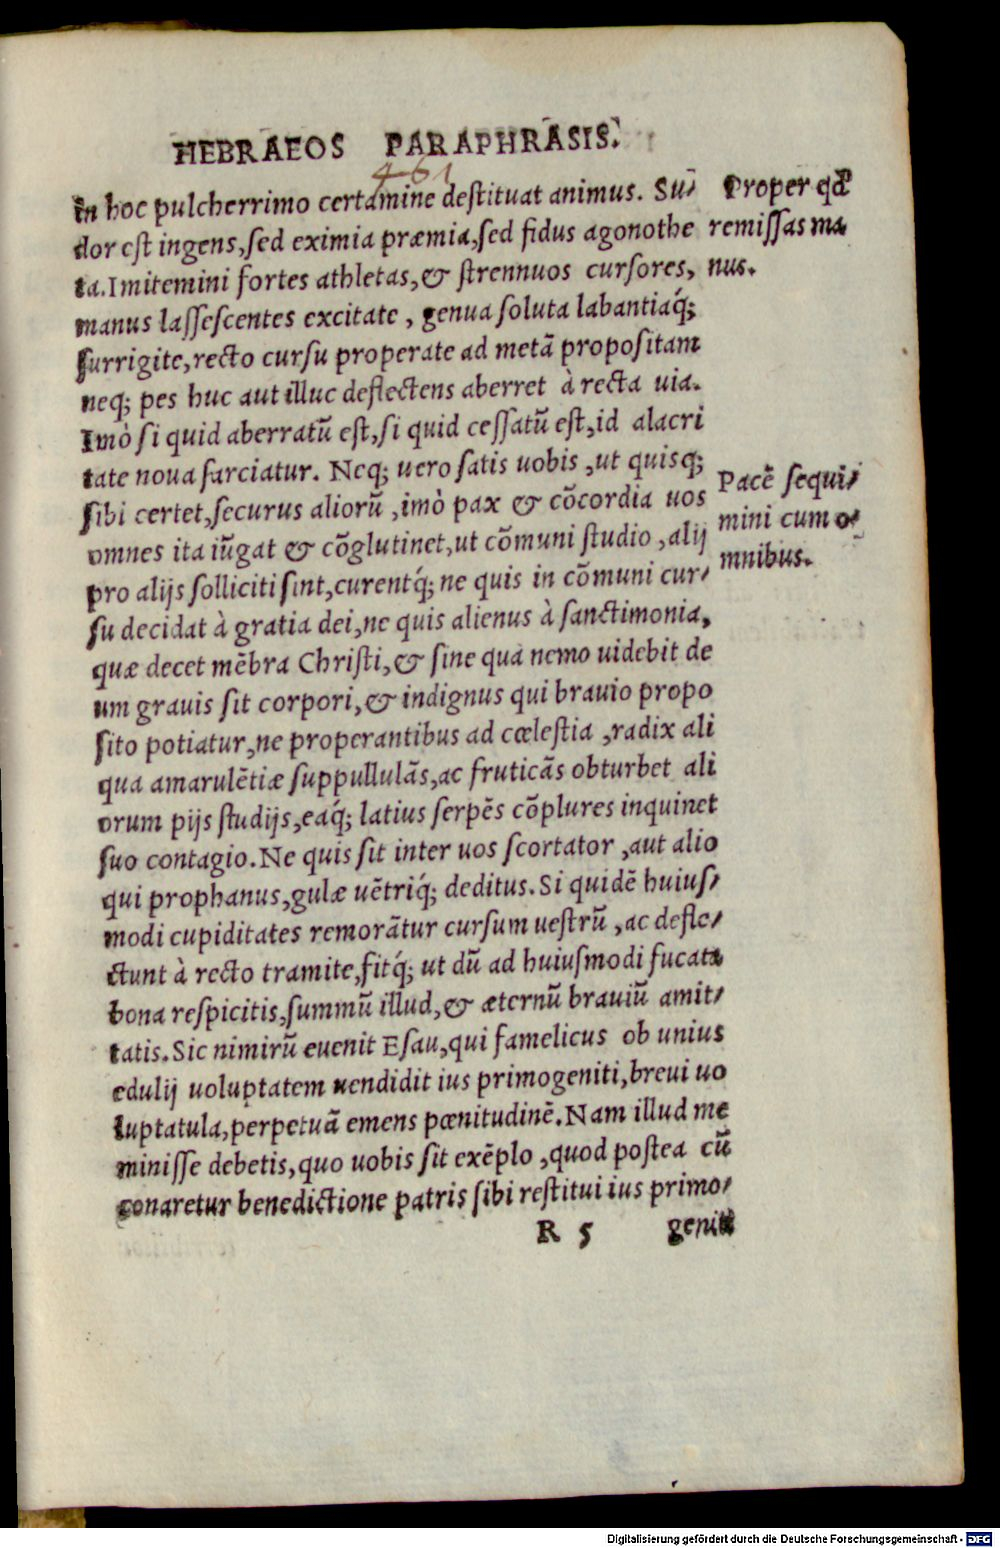 HEBRAEOS PARAPHRASIS.
461
in hoc pulcherrimo certamine destituat animus. Su-
dor est ingens, sed eximia præmia, sed fidus agonothe
ta. Imitemini fortes athletas, & strennuos cursores,
manus lassescentes excitate, genua soluta labantiaq́;
surrigite, recto cursu properate ad metā propositam
neq; pes huc aut illuc deflectens aberret à recta uia.
Imò si quid aberratū est, si quid cessatū est, id alacri
tate noua sarciatur. Neq; uero satis uobis, ut quisq;
sibi certet, securus aliorū, imò pax & cōcordia uos
omnes ita iūgat & cōglutinet, ut cōmuni studio, alij
pro alijs solliciti sint, curentq́; ne quis in cōmuni cur-
su decidat à gratia dei, ne quis alienus à sanctimonia,
quæ decet mēbra Christi, & sine qua nemo uidebit de
um grauis sit corpori, & indignus qui brauio propo
sito potiatur, ne properantibus ad cœlestia, radix ali
qua amarulētiæ suppullulās, ac fruticās obturbet ali
orum pijs studijs, eaq́; latius serpēs cōplures inquinet
suo contagio. Ne quis sit inter uos scortator, aut alio
qui prophanus, gulæ uētriq́; deditus. Si quidē huius-
modi cupiditates remorātur cursum uestrū, ac defle-
ctunt à recto tramite, fitq́; ut dū ad huiusmodi fucata
bona respicitis, summū illud, & æternū brauiū amit-
tatis. Sic nimirū euenit Esau, qui famelicus ob unius
edulij uoluptatem uendidit ius primogeniti, breui uo
luptatula, perpetuā emens pœnitudinē. Nam illud me
minisse debetis, quo uobis sit exēplo, quod postea cū
conaretur benedictione patris sibi restitui ius primo-
R 5 geniti
Proper qđ
remissas ma
nus.
Pacē sequi-
mini cum o-
mnibus.
Digitalisierung gefördert durch die Deutsche Forschungsgemeinschaft - DFG